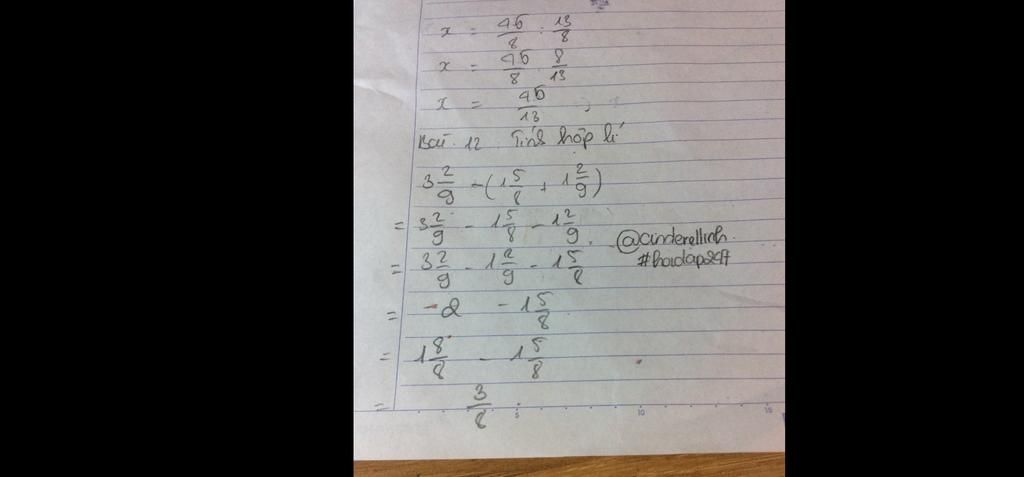 x = 45/8 : 13/8
x = 45/8 8/13
x = 45/13
Bài 12 Tính hợp lí
3 2/9 - (1 5/8 + 1 2/9)
= 3 2/9 - 1 5/8 - 1 2/9
@cinderellinh
= 3 2/9 - 1 2/9 - 1 5/8
#hoidap247
= -2 - 1 5/8
= 1 8/8 - 1 5/8
= 3/8
5 10 15